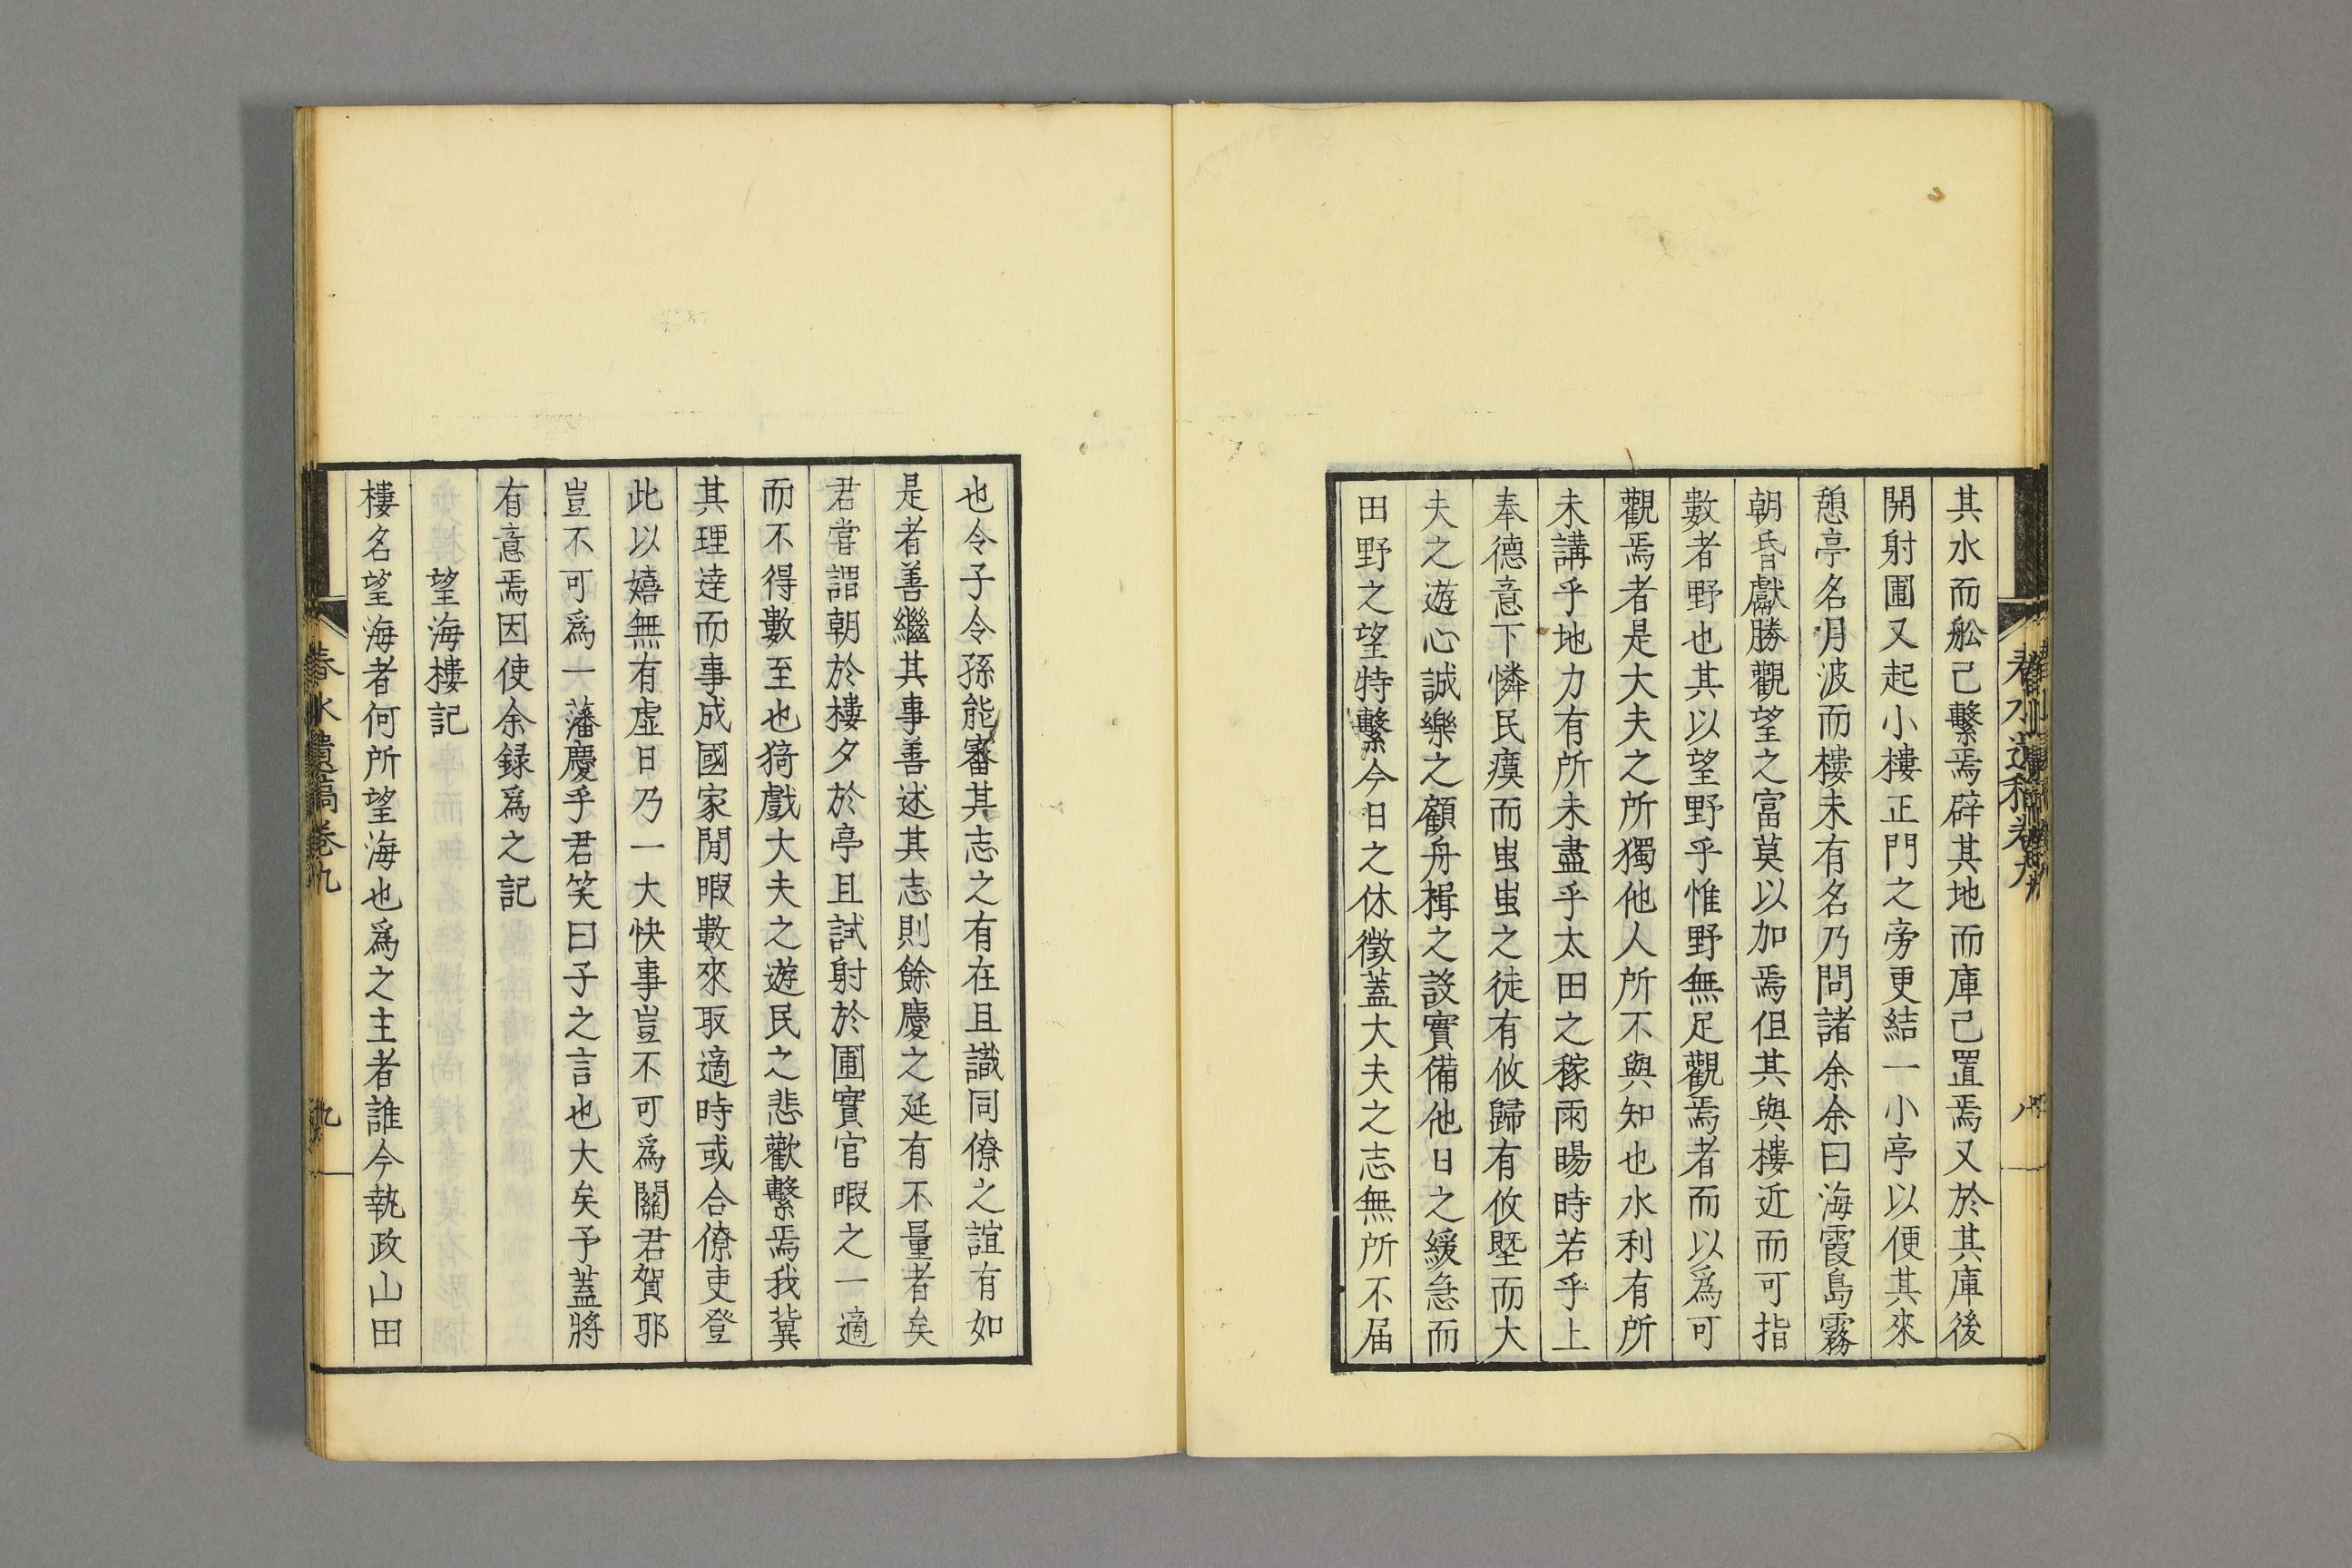 其水而舩己繫焉辟其地而庫己置焉又於其庫後
開射圃又起小樓正門之旁更結一小亭以便其來
憩亭名月波而樓未有名乃問諸余余曰海霞島霧
朝昏獻勝觀望之富莫以加焉但其與樓近而可指
數者野也其以望野乎惟野無足觀焉者而以爲可
觀焉者是大夫之所獨他人所不與知也水利有所
未講乎地力有所未盡乎太田之稼雨暘時若乎上
奉德意下憐民瘼而虫虫之徒有攸歸有攸塈而大
夫之遊心誠樂之顧舟楫之設實備他日之緩急而
田野之望特繫今日之休徵蓋大夫之志無所不届
也令子令孫能審其志之有在且識同僚之誼有如
是者善繼其事善述其志則餘慶之延有不量者矣
君嘗謂朝於樓夕於亭且試射於圃實官暇之一適
而不得數至也猗戲大夫之遊民之悲歡繫焉我冀
其理逹而事成國家閒暇數來取適時或合僚吏登
此以嬉無有虛日乃一大快事豈不可爲關君賀耶
豈不可爲一藩慶乎君笑曰子之言也大矣予蓋將
有意焉因使余録爲之記
望海樓記
樓名望海者何所望海也爲之主者誰今執政山田
春水遺稿卷九
九